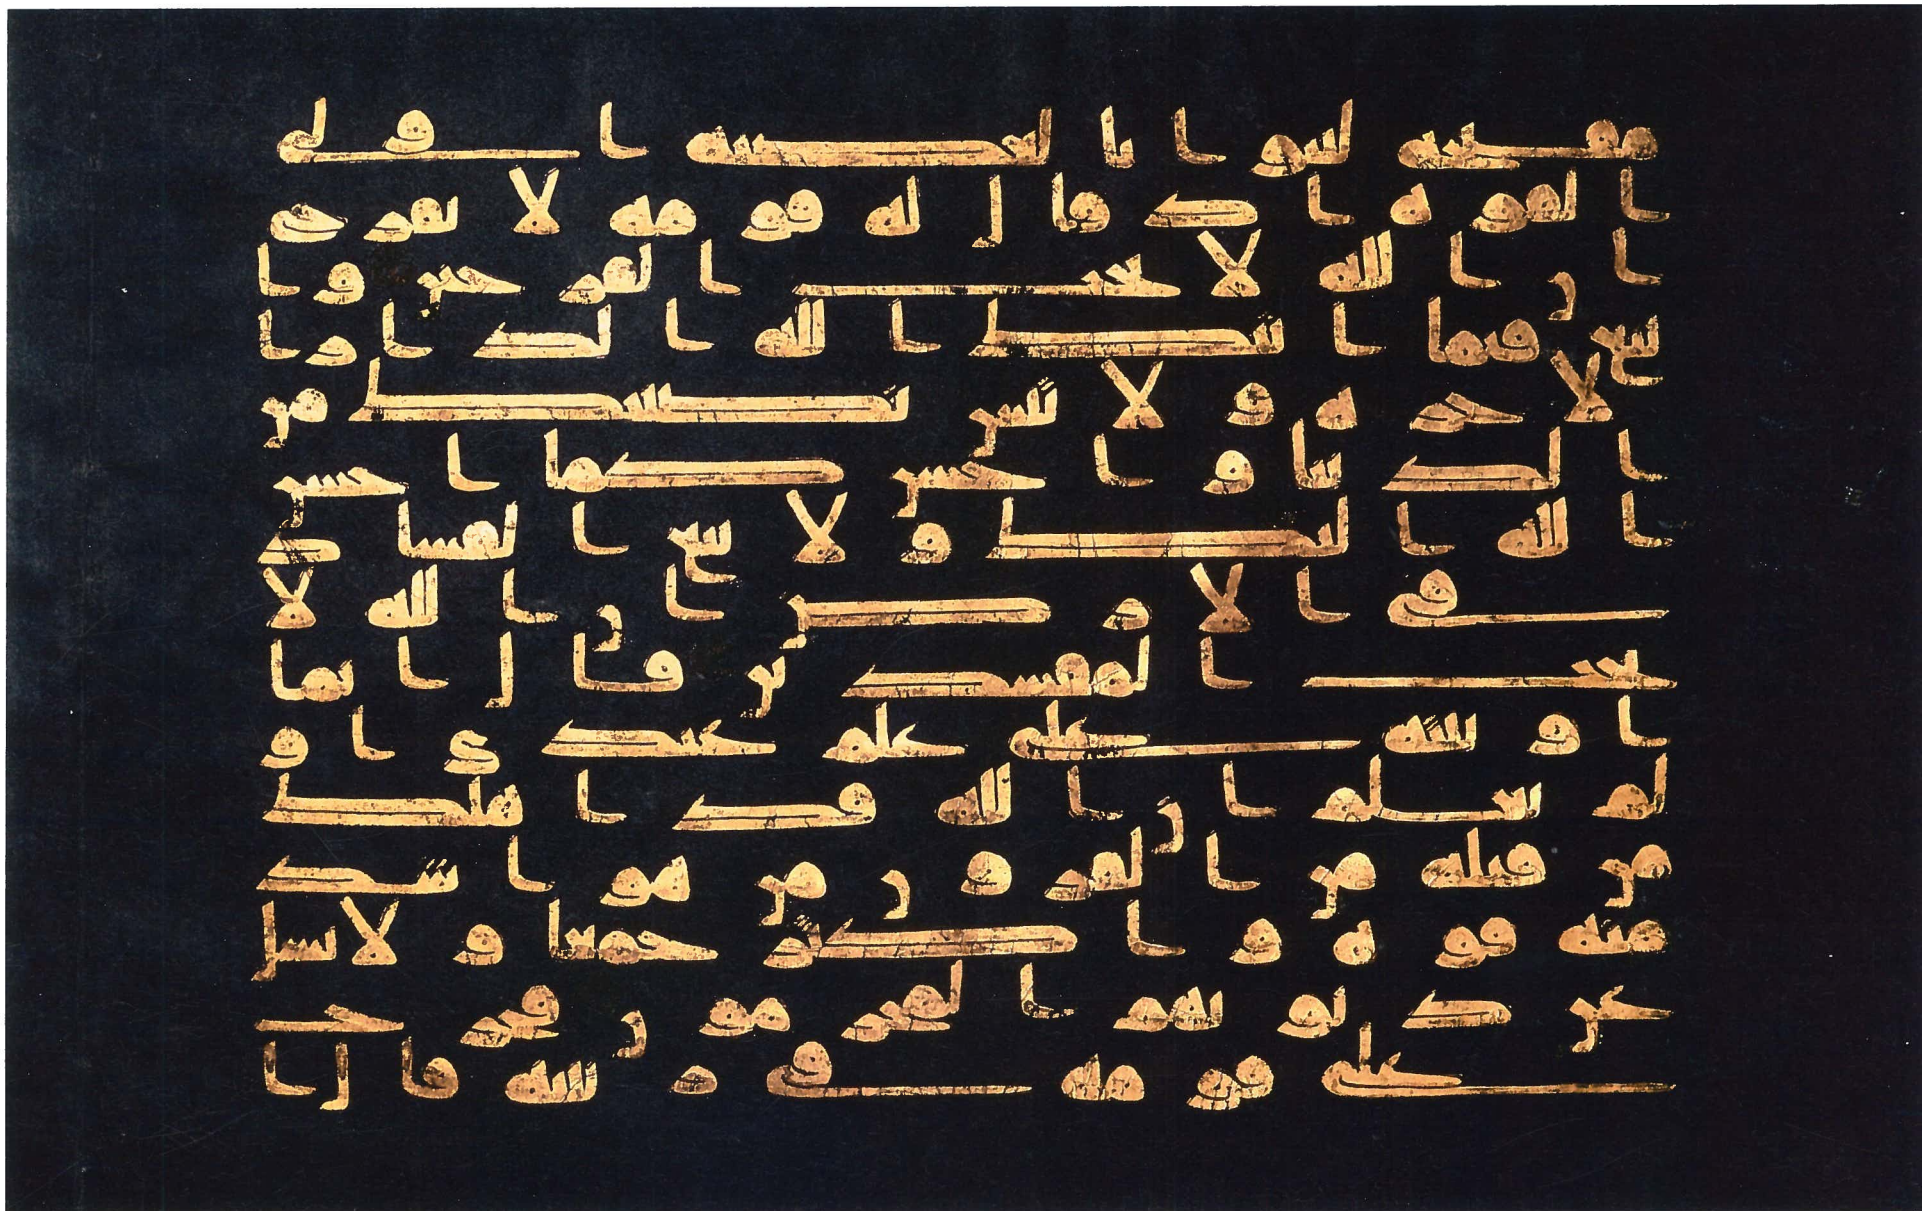 مفتحه لتنوا بالعصبه اولي
القوه اذ قال له قومه لا تفرح
ان الله لا يحب الفرحين وا
بتغ فيما اتىك الله الدار ا
لاخره ولا تنس نصيبك من
الدنيا واحسن كما احسن
الله اليك ولا تبغ الفساد
في الارض ان الله لا
يحب المفسدين قال انما
اوتيته على علم عندي او
لم يعلم ان الله قد اهلك
من قبله من القرون من هو اشد
منه قوه واكثر جمعا ولا يسل
عن ذنوبهم المجرمون فخرج
على قومه في زينته قال ا